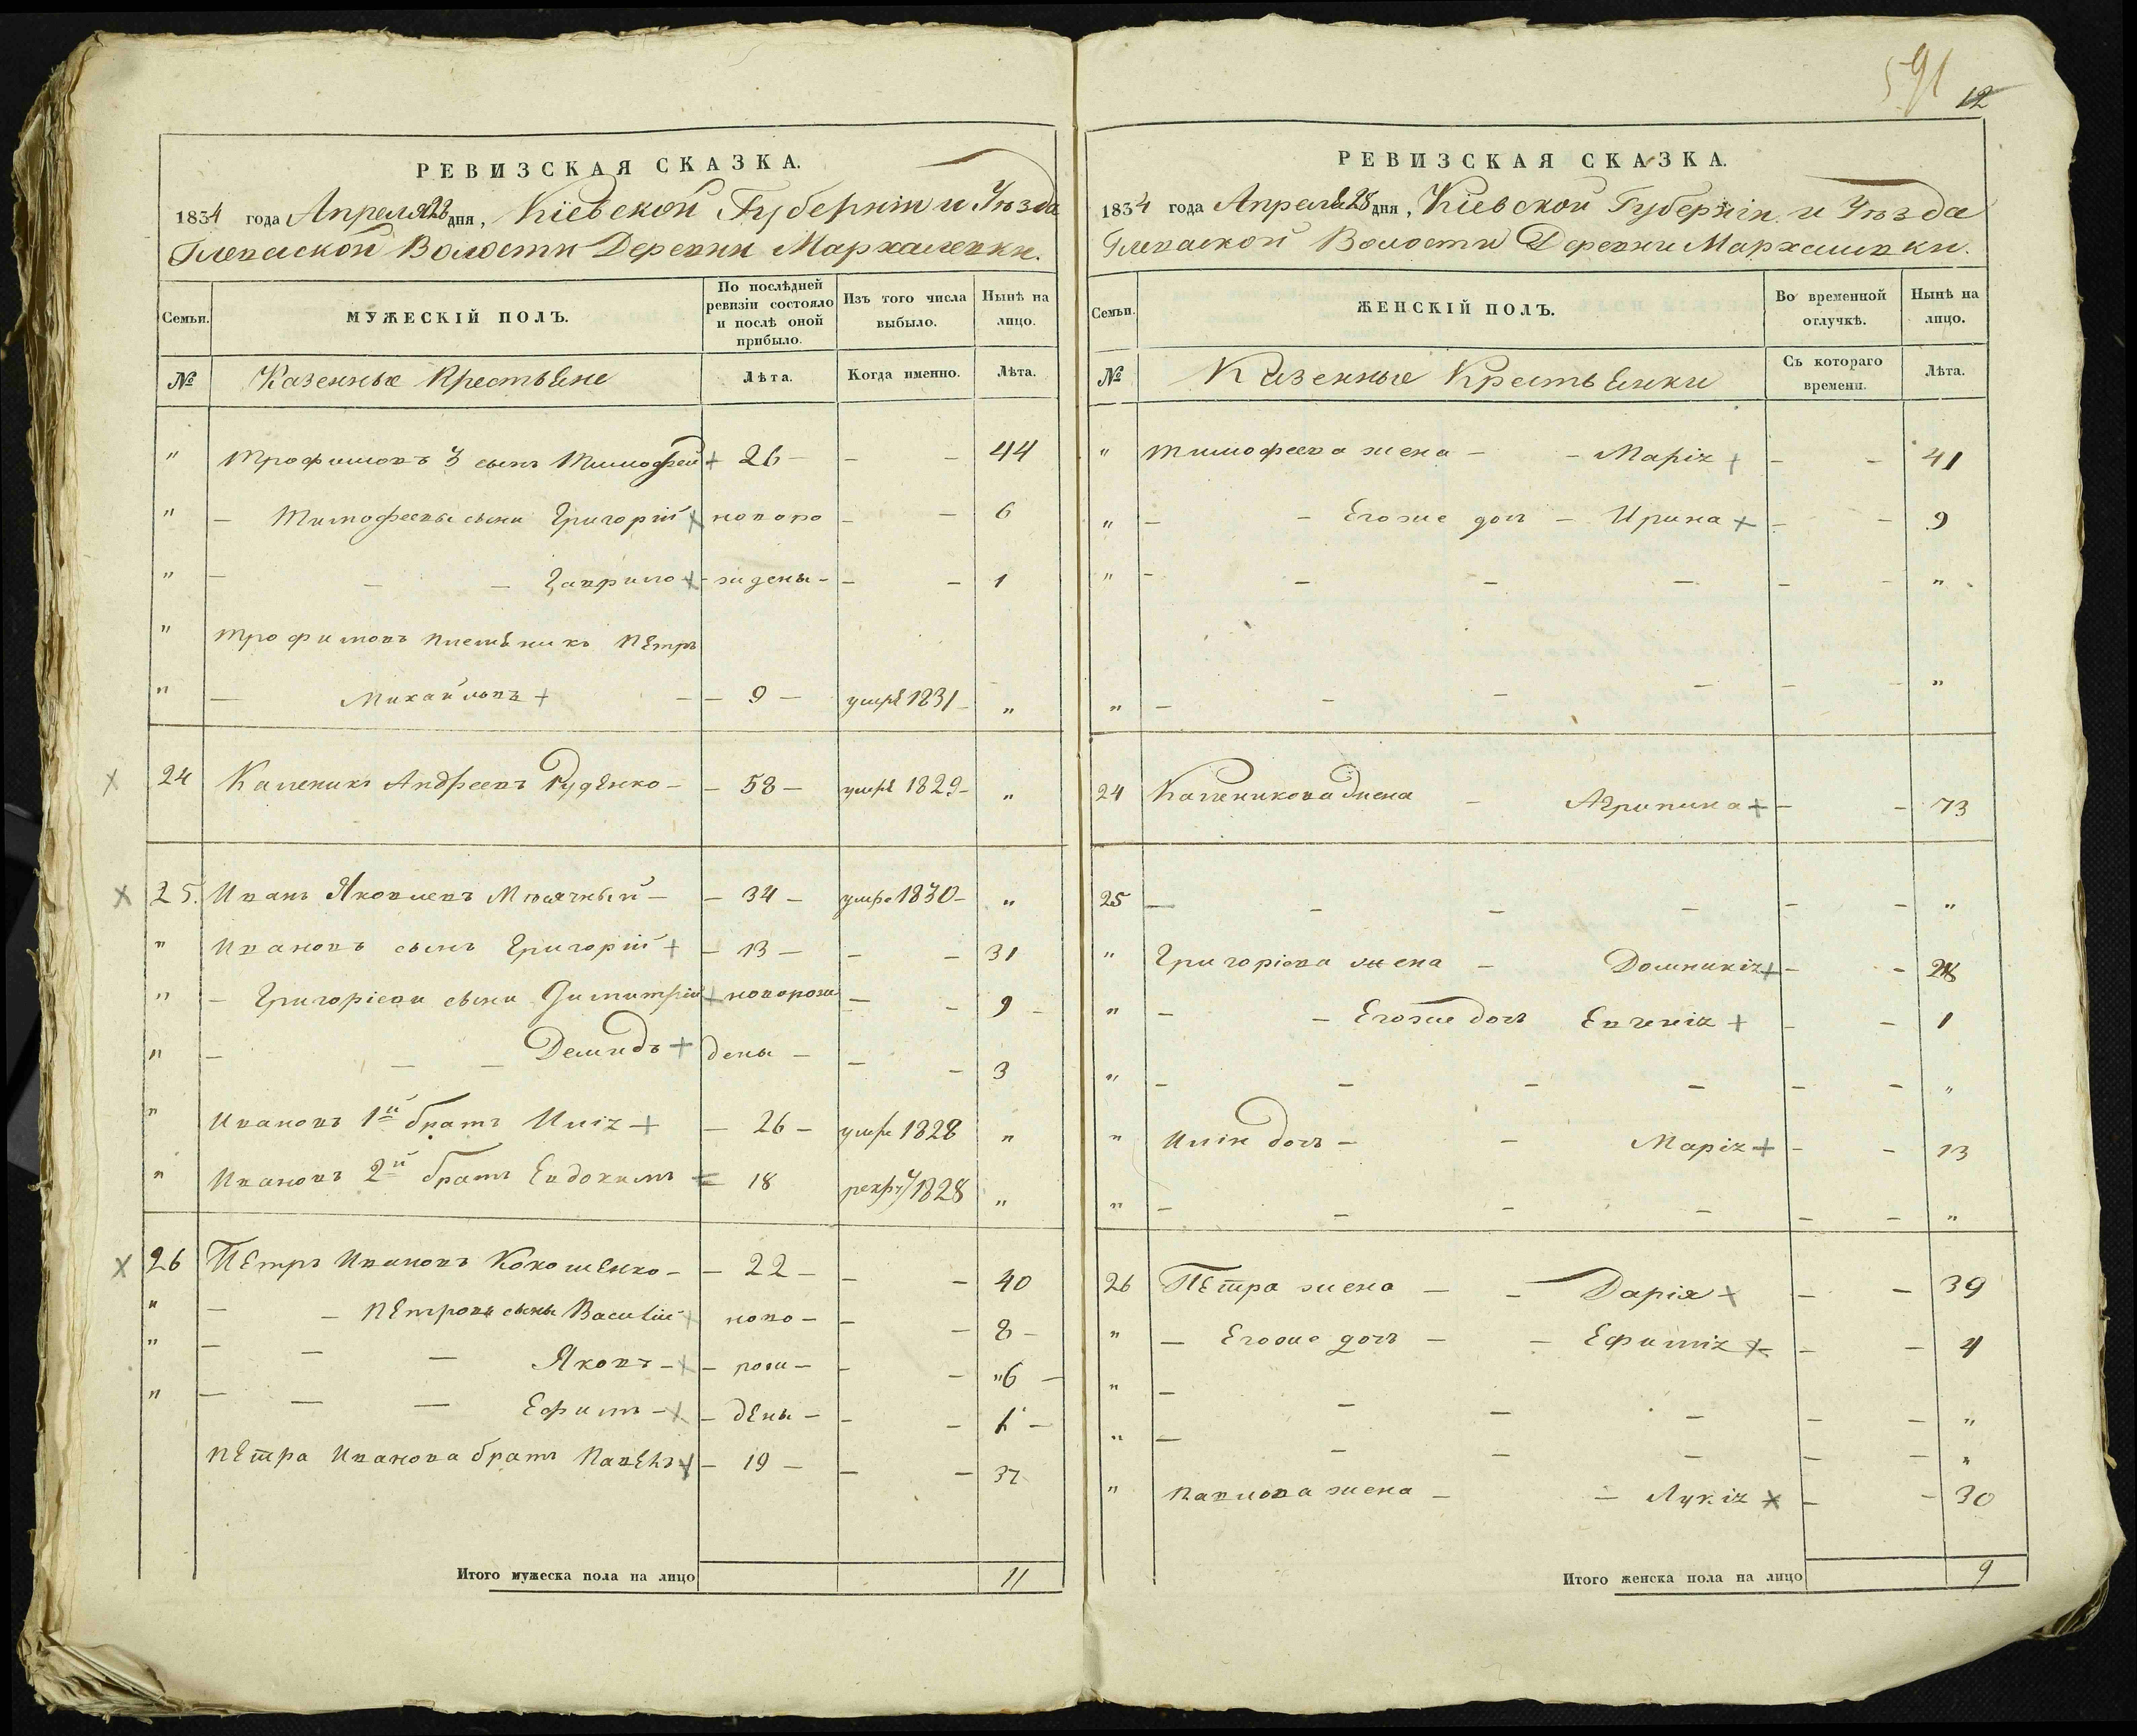 591
12
РЕВИЗСКАЯ СКАЗКА.
1834 года Апреля 28 дня, Кіевской Губерніи и Уѣзда
Глеваской Волости Деревни Мархалевки.
Семьи.
МУЖЕСКІЙ ПОЛЪ.
По послѣдней ревизіи состояло и послѣ оной прибыло.
Изъ того числа выбыло.
Нынѣ на лицо.
№
Казенные Крестьяне
Лѣта.
Когда именно.
Лѣта.
" Трофимовъ 3 сынъ Тимофей + 26 - - - 44
" - Тимофеевы сыни Григорій + новоро - - 6
" - - - Гаврило + - жд­ены - - - 1
" Трофимовъ племѣникъ Петръ
" - Михайловъ + - - 9 - умре 1831 - "
24 Каленикъ Андреевъ Руденко - - 58 - умре 1829 - "
25. Иванъ Яковлевъ Мюсячный - - 34 - умре 1830 - "
" Ивановъ сынъ Григорій + - 13 - - - 31
" - Григоріеви сыни Димитрій + новорож - - 9 -
" - - - Демидъ + дены - - - 3
" Ивановъ 1й братъ Илія + - 26 - умре 1828 "
" Ивановъ 2й братъ Евдокимъ 18 рекру 1828 "
26 Петръ Ивановъ Кокошенко - - 22 - - - 40
" - - Петровы сыны Василій + ново - - - 8 -
" - - - Яковъ - + - рож - - - "6 -
" - - - Ефимъ - + - дены - - - 1 -
Петра Иванова братъ Павелъ + - 19 - - - 37
Итого мужеска пола на лицо 11
РЕВИЗСКАЯ СКАЗКА.
1834 года Апреля 28 дня, Кіевской Губерніи и Уѣзда
Глеваской Волости Деревни Мархалевки.
Семьи.
ЖЕНСКІЙ ПОЛЪ.
Во временной отлучкѣ.
Нынѣ на лицо.
№
Казенные Крестьянки
Съ котораго времени.
Лѣта.
" Тимофеева жена - - Марія + - - 41
" - - Егоже доч - Ирина + - - 9
" - - - - - - "
" - - - - - - "
24 Каленикова жена - Агрипина + - - 73
25 - - - - - - "
" Григоріева жена - Домникія + - - 28
" - - Егоже доч Евгенія + - - 1
" - - - - - - "
" Иліи доч - - Марія + - - 13
" - - - - - - "
26 Петра жена - - Дарія + - - 39
" - Егоже доч - - Ефимія + - - 4
" - - - - - - "
" - - - - - - "
" Павлова жена - - Лукія + - - 30
Итого женска пола на лицо 9